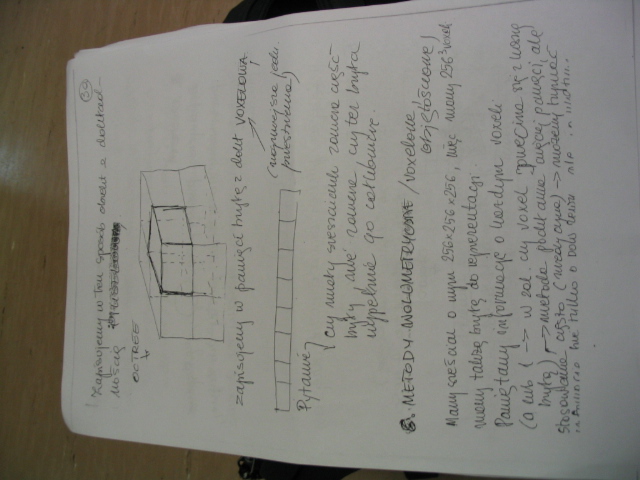 34
! Zapisujemy w ten sposób obiekt z dokład-
nością
OCTREE
zapisujemy w pamięci bryłę z dokł. VOXELOWĄ.
(najmniejsza jedn.
przestrzenna)
Pytanie,
czy mały sześcianik zawiera część
bryły, nie zawiera czy też bryła
wypełnia go całkowicie.
6. METODY WOLUMETRYCZNE / voxelowe
objętościowe)
Mamy sześcian o wym 256×256×256, więc mamy 256³ voxeli
mamy taką bryłę do reprezentacji.
Pamiętamy informację o każdym voxelu
(0 lub 1 → w zal. czy voxel przecina się z naszą
bryłą) → metoda podstawowa zużywa pamięci, ale
stosowana często → musimy trzymać
w pamięci nie tylko o